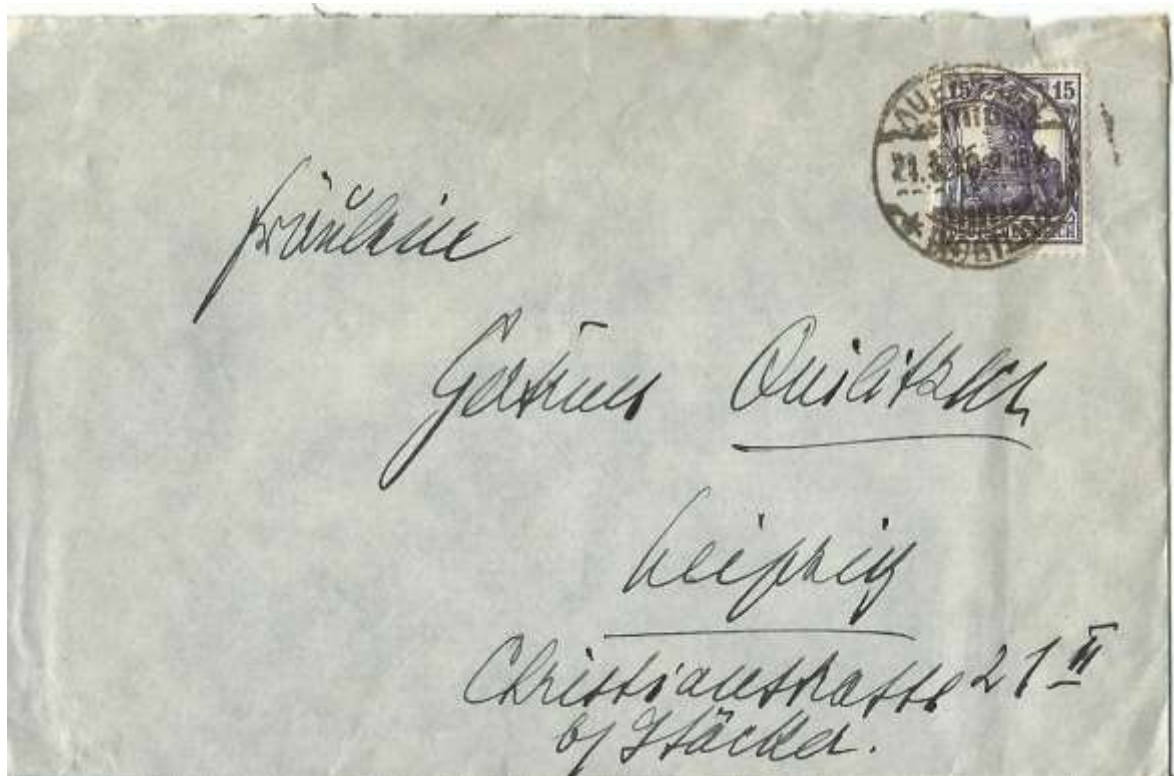 15 15
Fräulein
Gertrud Quilitzsch
Leipzig
Christianstrasse 21 II
b/ Stäcker.